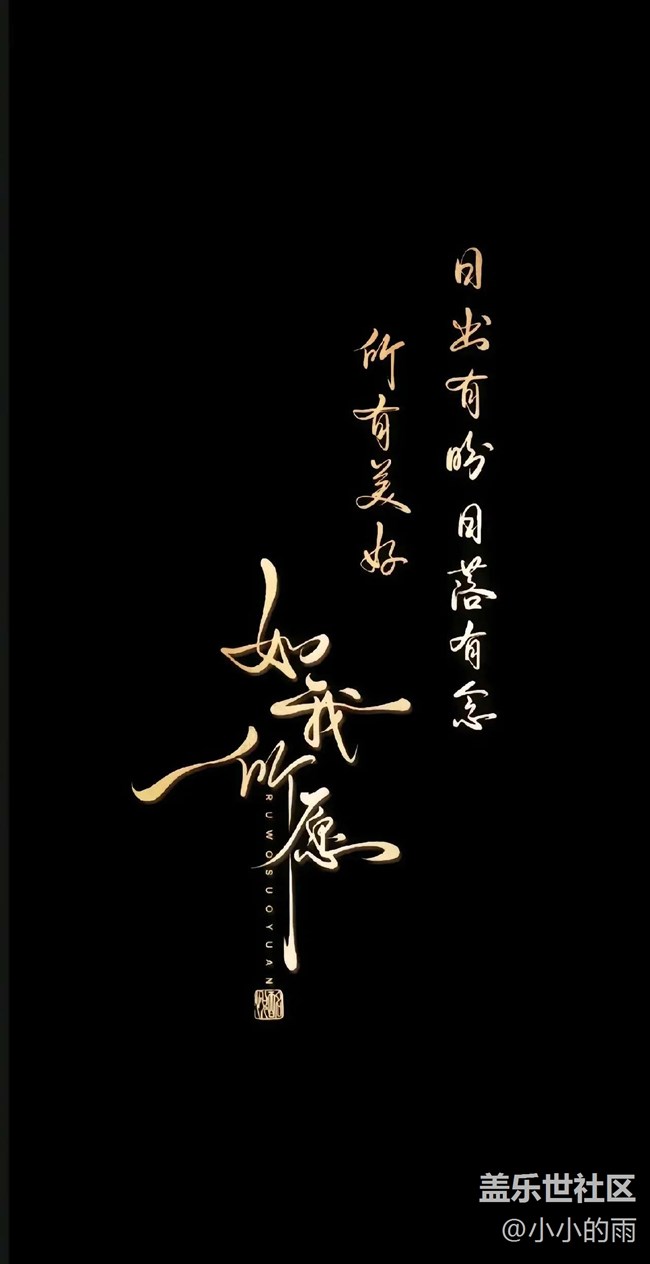 日出有盼 日落有念
所有美好
如我所愿
RUWOSUOYUAN
盖乐世社区
@小小的雨